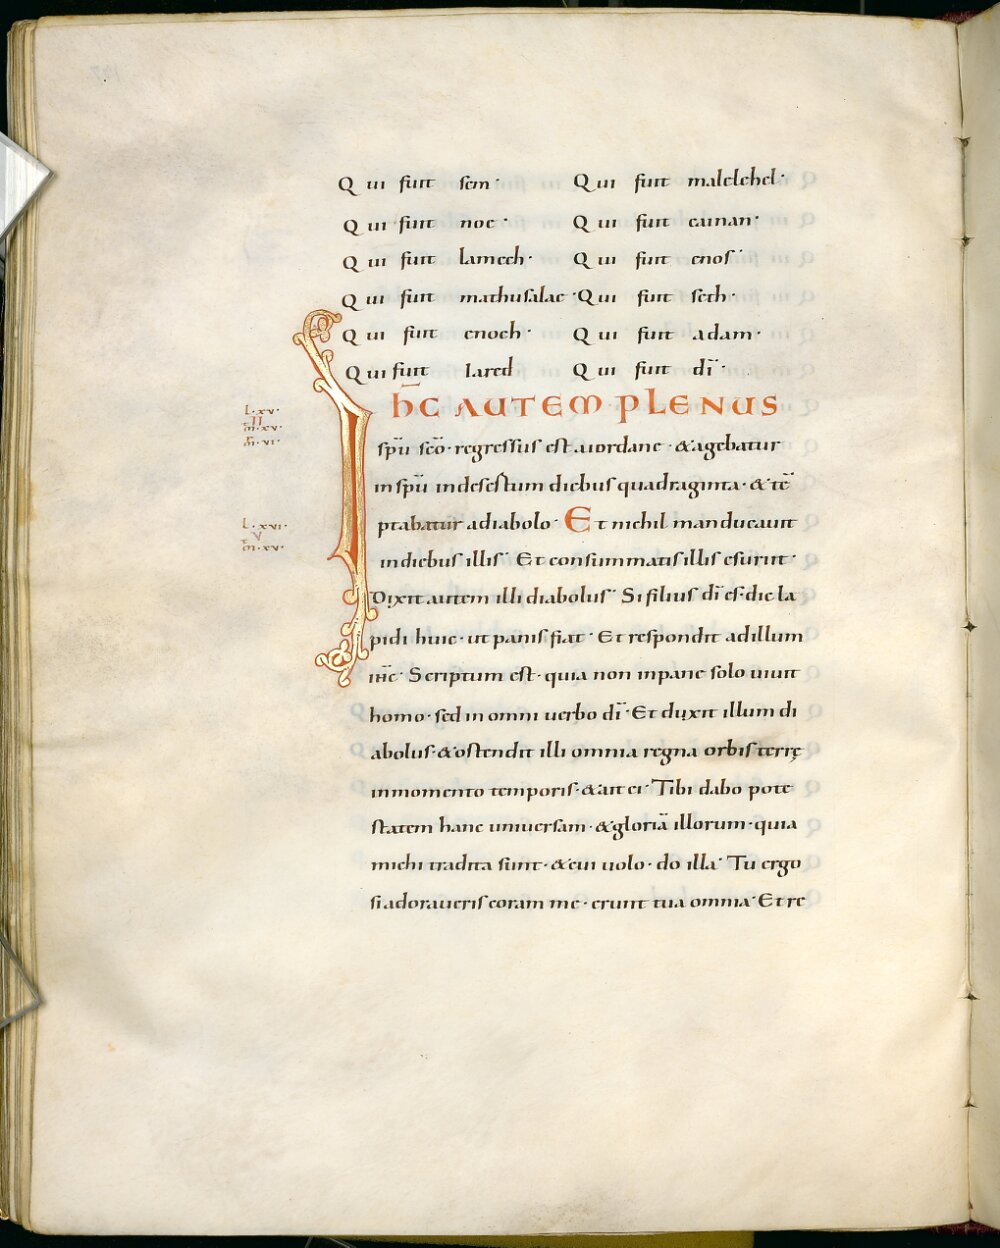 Qui fuit sem·
Qui fuit noe·
Qui fuit lamech·
Qui fuit mathusalae·
Qui fuit enoch·
Qui fuit Iared
Qui fuit malelehel·
Qui fuit cainan·
Qui fuit enos·
Qui fuit seth·
Qui fuit adam·
Qui fuit dī·
L·xv·
II
m̄·xv·
m̄·vi·
Ih̄c AUTEM PLENUS
spū scō· regressus est aiordane· &agebatur
inspū indesestum diebus quadraginta· & tē
ptabatur adiabolo· Et nichil manducauit
indiebus illis· Et consummatis illis esuriit·
Dixit autem illi diabolus· Si filius dī es· dic la
pidi huic· ut panis fiat· Et respondit adillum
ih̄c· Scriptum est· quia non inpane solo uiuit
homo· sed in omni uerbo dī· Et duxit illum di
abolus· & ostendit illi omnia regna orbis terrę
inmomento temporis· & ait ei· Tibi dabo pote
statem hanc uniuersam· & gloriā illorum· quia
michi tradita sunt· & cui uolo· do illa· Tu ergo
si adoraueris coram me· erunt tua omnia· Et re
L·xvi·
V
m̄·xv·